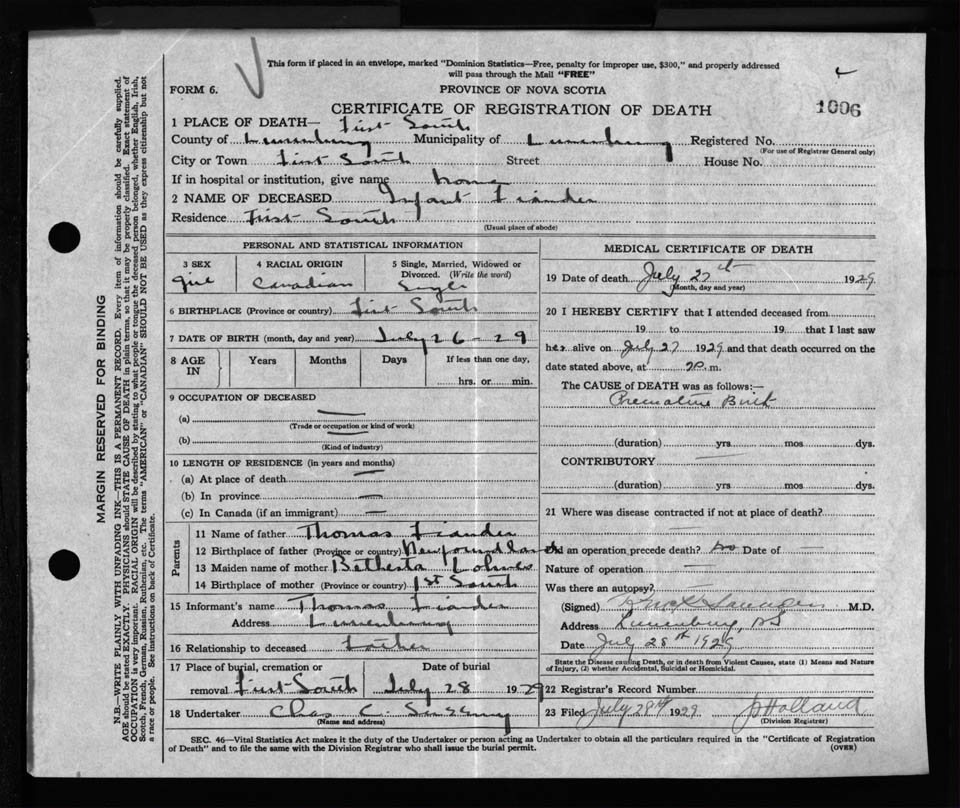 This form if placed in an envelope, marked "Dominion Statistics—Free, penalty for improper use, $300," and properly addressed
will pass through the Mail "FREE"
FORM 6.
PROVINCE OF NOVA SCOTIA
CERTIFICATE OF REGISTRATION OF DEATH
1006
1 PLACE OF DEATH— First South
County of Lunenburg Municipality of Lunenburg Registered No.
(For use of Registrar General only)
City or Town First South Street House No.
If in hospital or institution, give name home
2 NAME OF DECEASED Infant Fiander
Residence First South
(Usual place of abode)
PERSONAL AND STATISTICAL INFORMATION
3 SEX 4 RACIAL ORIGIN 5 Single, Married, Widowed or
Divorced. (Write the word)
girl Canadian Single
6 BIRTHPLACE (Province or country) First South
7 DATE OF BIRTH (month, day and year) July 26 - 29
8 AGE IN Years Months Days If less than one day,
hrs. or min.
9 OCCUPATION OF DECEASED
(a)
(Trade or occupation or kind of work)
(b)
(Kind of industry)
10 LENGTH OF RESIDENCE (in years and months)
(a) At place of death
(b) In province
(c) In Canada (if an immigrant)
Parents
11 Name of father Thomas Fiander
12 Birthplace of father (Province or country) Newfoundland
13 Maiden name of mother Bethesta
14 Birthplace of mother (Province or country) 1st South
15 Informant's name Thomas Fiander
Address Lunenburg
16 Relationship to deceased Father
17 Place of burial, cremation or Date of burial
removal First South July 28 1929
18 Undertaker Chas C.
(Name and address)
MEDICAL CERTIFICATE OF DEATH
19 Date of death July 27th 1929
(Month, day and year)
20 I HEREBY CERTIFY that I attended deceased from
19 to 19 that I last saw
her alive on July 27 1929 and that death occurred on the
date stated above, at 2 P. m.
The CAUSE OF DEATH was as follows:—
Premature Birth
(duration) yrs mos dys.
CONTRIBUTORY
(duration) yrs mos dys.
21 Where was disease contracted if not at place of death?
Did an operation precede death? no Date of
Nature of operation
Was there an autopsy?
(Signed) Saunders M.D.
Address Lunenburg, NS
Date July 28th 1929
State the Disease causing Death, or in death from Violent Causes, state (1) Means and Nature
of Injury, (2) whether Accidental, Suicidal or Homicidal.
22 Registrar's Record Number
23 Filed July 29th 1929 Holland
(Division Registrar)
SEC. 46—Vital Statistics Act makes it the duty of the Undertaker or person acting as Undertaker to obtain all the particulars required in the "Certificate of Registration
of Death" and to file the same with the Division Registrar who shall issue the burial permit.
(OVER)
MARGIN RESERVED FOR BINDING
N.B.—WRITE PLAINLY WITH UNFADING INK—THIS IS A PERMANENT RECORD. Every item of information should be carefully supplied.
AGE should be stated EXACTLY. PHYSICIANS should STATE CAUSE OF DEATH in plain terms, so that it may be properly classified. Exact statement of
OCCUPATION is very important. RACIAL ORIGIN will be described by stating to what people or tongue the deceased person belonged, whether English, Irish,
Scotch, French, German, Russian, Ruthenian, etc. The terms "AMERICAN" or "CANADIAN" SHOULD NOT BE USED as they express citizenship but not
a race or people. See instructions on back of Certificate.